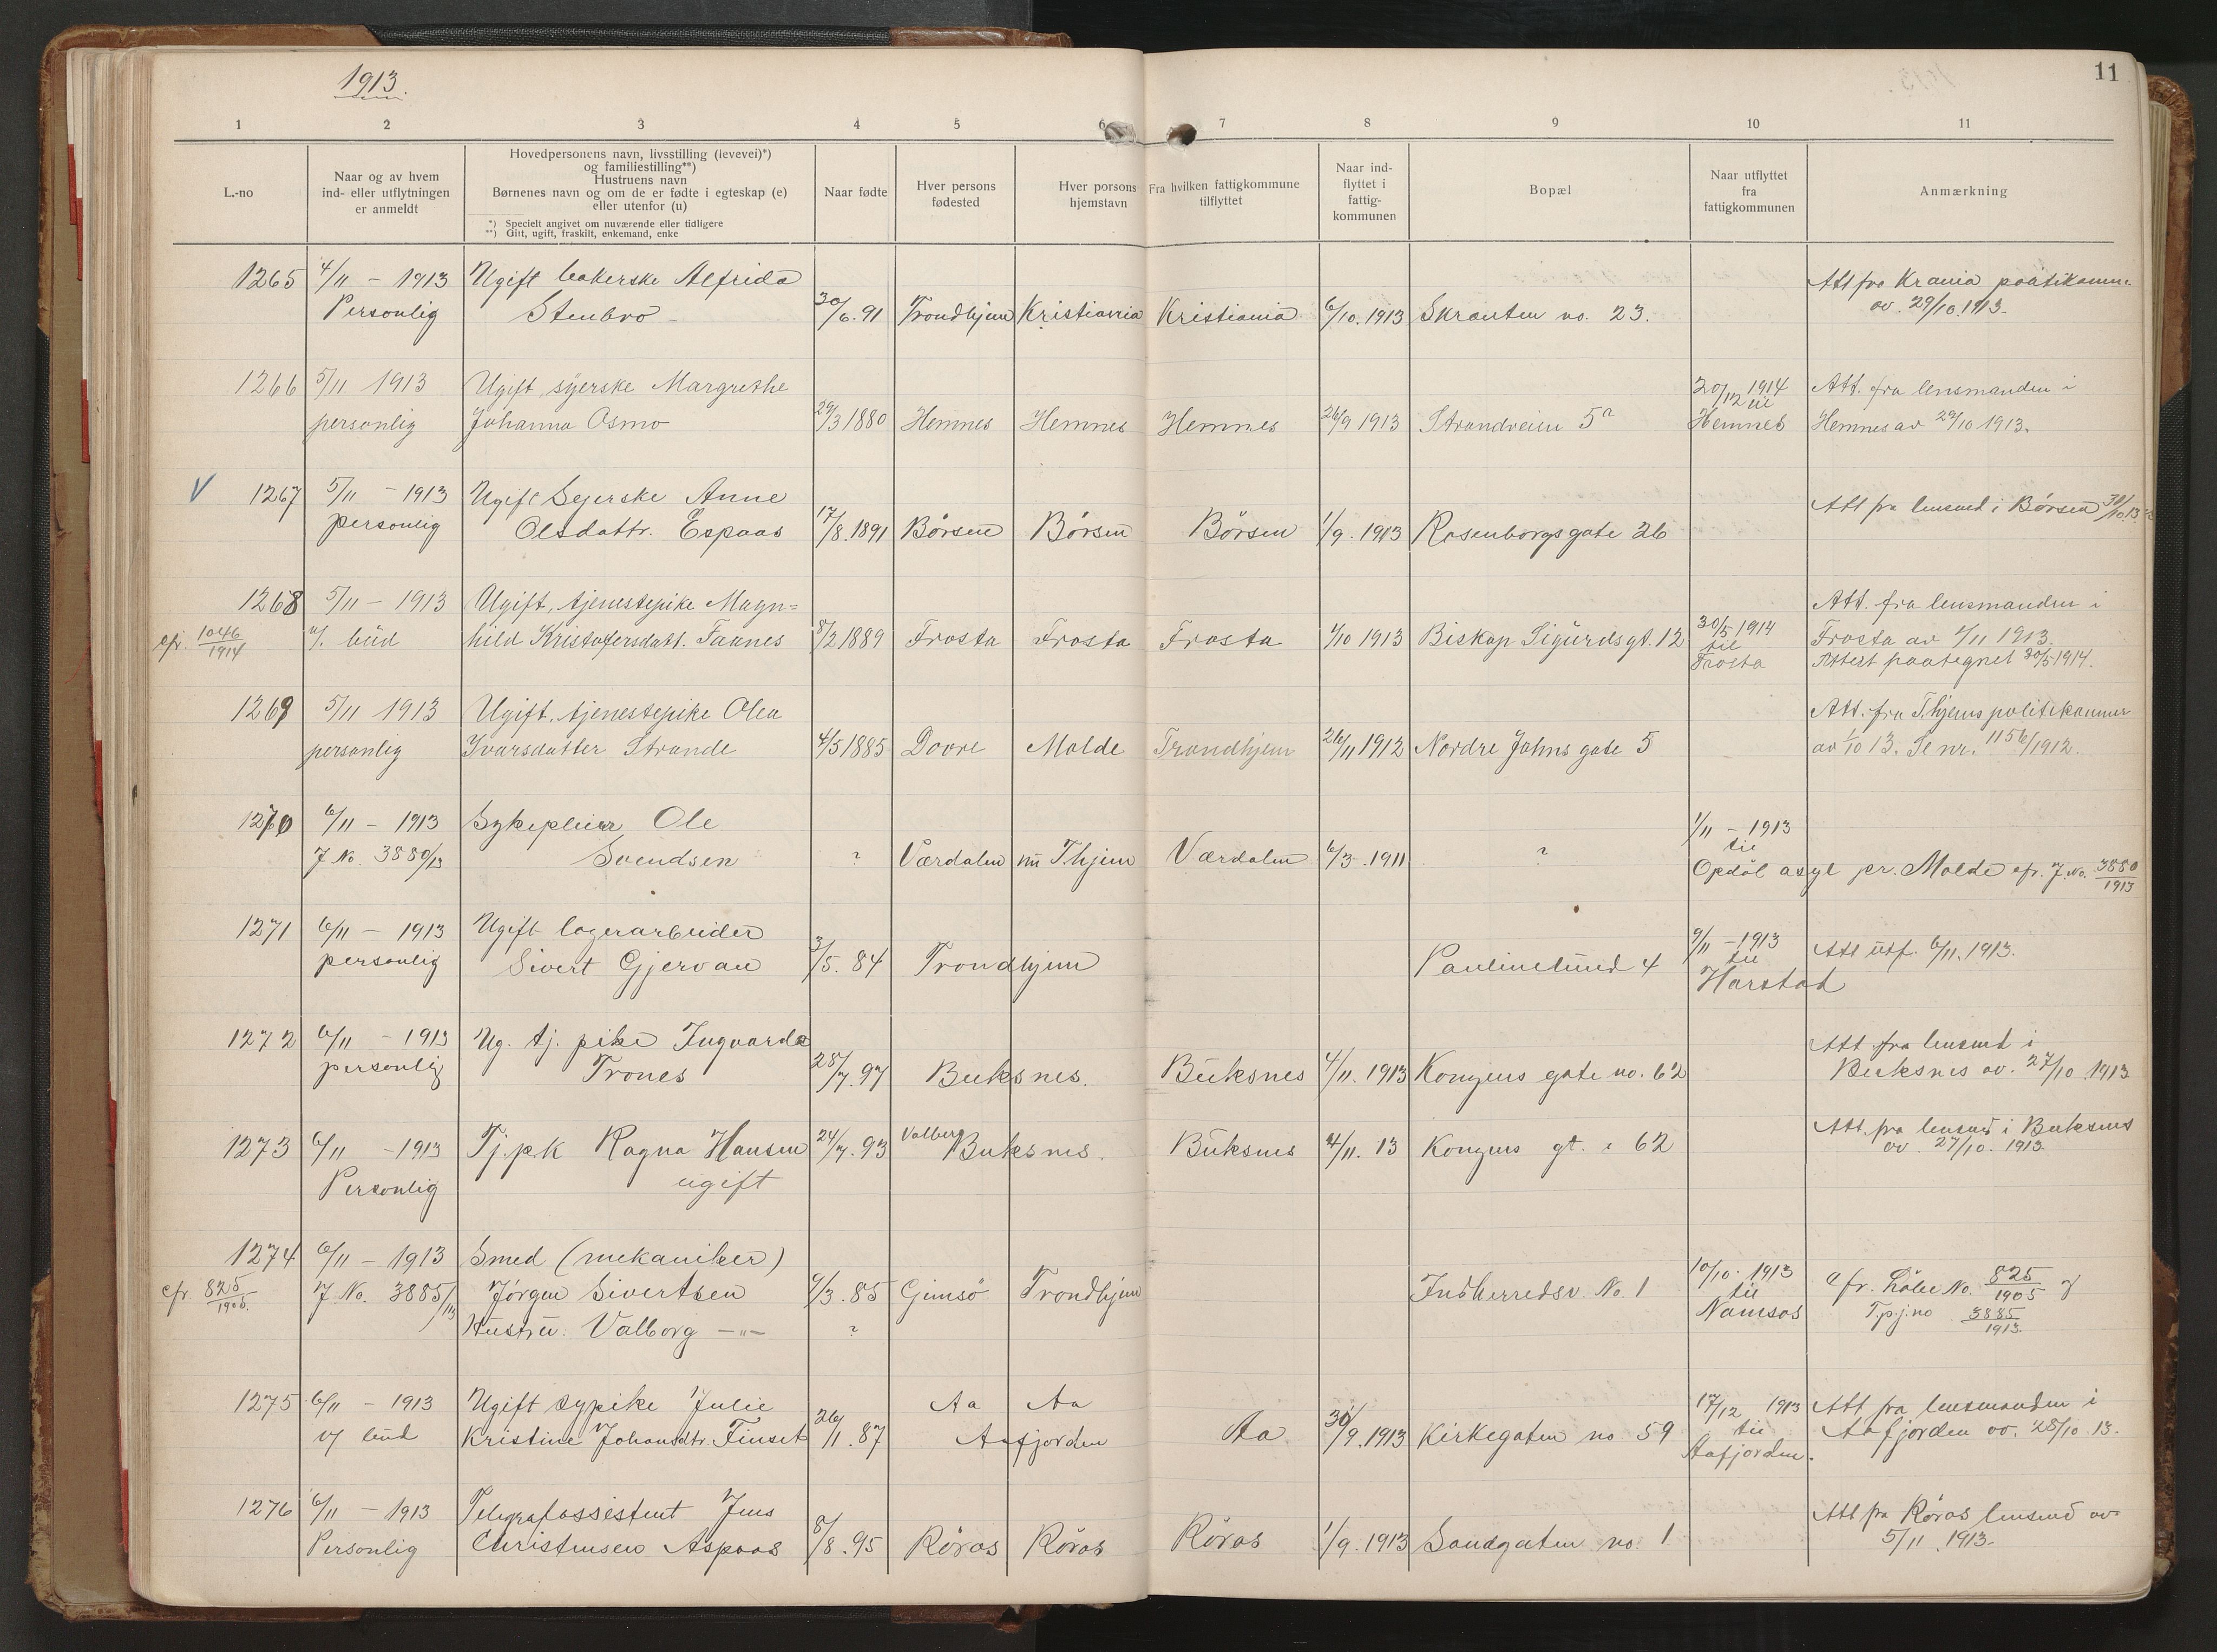 1913.
11
1 2 3 4 5 6 7 8 9 10 11
L.-no
Naar og av hvem
ind- eller utflytningen
er anmeldt
Hovedpersonens navn, livsstilling (levevei)*)
og familiestilling**)
Hustruens navn
Børnenes navn og om de er fødte i egteskap (e)
eller utenfor (u)
*) Specielt angivet om nuværende eller tidligere
**) Gift, ugift, fraskilt, enkemand, enke
Naar fødte
Hver persons
fødested
Hver porsons
hjemstavn
Fra hvilken fattigkommune
tilflyttet
Naar ind-
flyttet i
fattig-
kommunen
Bopæl
Naar utflyttet
fra
fattigkommunen
Anmærkning
1265 4/11 - 1913 Ugift bakerske Alfrida Att fra Krania politikamm.
Personlig Stenbro 30/6.91 Trondhjem Kristiania Kristiania 6/10.1913 Skransten no. 23. av. 29/10.1913.
1266 5/11 1913 Ugift syerske Margrethe 20/12 1914 til Att. fra lensmanden i
personlig Johanna Osmo 29/3 1880 Hemnes Hemnes Hemnes 26/9 1913 Strandveien 5a Hemnes Hemnes av 29/10 1913.
V 1267 5/11 - 1913 Ugift Syerske Anne Att fra lensmd i Børsen 30/10.13
personlig Olsdattr. Espaas 17/8.1891 Børsen Børsen Børsen 1/9.1913 Rosenborgsgate 26
1268 5/11 - 1913 Ugift, tjenestepike Magn= Att. fra lensmanden i
cfr. 1046/1914 v/. bud hild Kristofersdatt. Faanes 8/2 1889 Frosta Frosta Frosta 1/10 1913 Biskop Sigurdsgt. 12 30/5 1914 Frosta av 4/11 1913.
til
Frosta Attest paategnet 30/5 1914.
1269 5/11 1913 Ugift, tjenestepike Olea Att. fra T.hjems politikammer
personlig Ivarsdatter Strande 4/5 1885 Dovre Molde Trondhjem 26/11 1912 Nordre Jahns gate 5 av 1/10 13. Se nr. 1156/1912.
1270 6/11 - 1913 Sykepleier Ole 1/11 - 1913
J No. 3880/13 Svendsen ? Værdalen nu T hjem Værdalen 6/3.1911 ? til
Opdøl asyl pr. Molde cfr. J. No. 3880/1913
1271 6/11 - 1913 Ugift lagerarbeider 9/11 - 1913 Att utf. 6/11.1913.
personlig Sivert Gjervan 3/5. 84 Trondhjem Paulinelund 4 til
Harstad
1272 6/11 - 1913 Ug. tj. pike Ingvarda Att fra lensmd i
personlig Trones 28/7.97 Buksnes. Buksnes 4/11.1913 Kongens gate no. 62 Buksnes av. 27/10.1913
1273 6/11 - 1913 Tj.pk Ragna Hansen 24/7.93 Valberg Buksnes. Buksnes 4/11. 13 Kongens gt. 62 Att. fra lensmd i Buksnes
av. 27/10. 1913.
Personlig ugift
1274 6/11 - 1913 Smed (mekaniker)
cfr 825/1905. J. No. 3885/13 Jørgen Sivertsen 9/3.85 Gimsø Trondhjem Indherredsv. No. 1 10/10. 1913 Cfr. Løbe No. 825/1905
Hustru. Valborg -"- ? til
Namsos T.p.j.no 3885/1913.
1275 6/11 - 1913 Ugift sypike Julie Aa Aa 17/12 1913 Att fra lensmanden i
v/ bud Kristine Johansdtr. Finset 26/1.87 Aafjorden Aa 30/9.1913 Kirkegaten no 59 til Aafjorden av. 28/10.13.
Aafjorden.
1276 6/11 - 1913 Telegrafassistent Jens Att fra Røros lensmd av
Personlig Christensen Aspaas 8/8.95 Røros Røros Røros 1/9.1913 Sandgaten no. 1 5/11.1913.